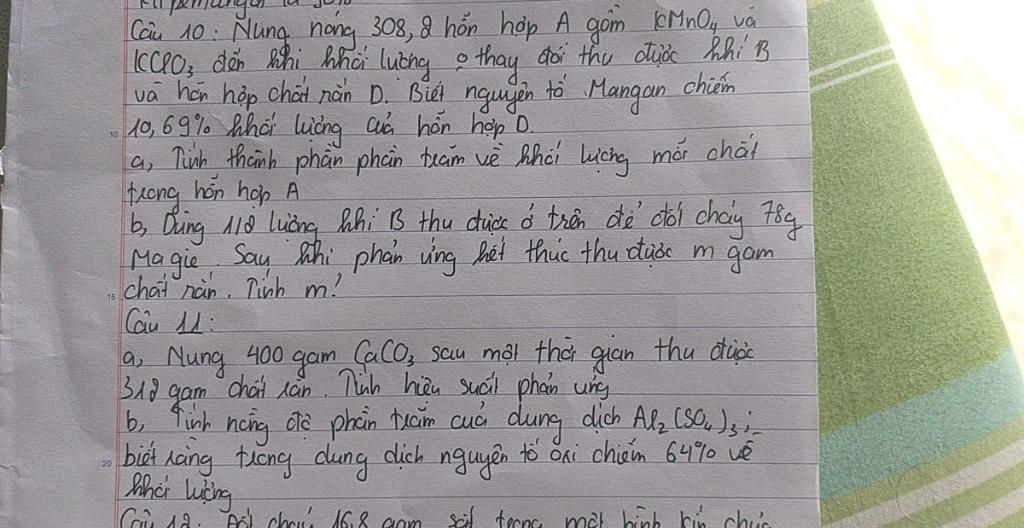 Câu 10: Nung nóng 308,2 hỗn hợp A gồm KMnO4 và
KClO3 đến khi khối lượng o thay đổi thu được khí B
và hỗn hợp chất rắn D. Biết nguyên tố Mangan chiếm
10
10,69% khối lượng của hỗn hợp D.
a, Tính thành phần phần trăm về khối lượng mỗi chất
trong hỗn hợp A
b, Dùng 1/2 lượng khí B thu được ở trên để đốt cháy 78g
Magie. Sau khi phản ứng kết thúc thu được m gam
15
chất rắn. Tính m!
Câu 11:
a, Nung 400 gam CaCO3 sau một thời gian thu được
312 gam chất rắn. Tính hiệu suất phản ứng
b, Tính nồng độ phần trăm của dung dịch Al2(SO4)3;
20
biết rằng trong dung dịch nguyên tố oxi chiếm 64% về
khối lượng
Câu 12: Đốt cháy 16,8 gam sắt trong một bình kín chứa